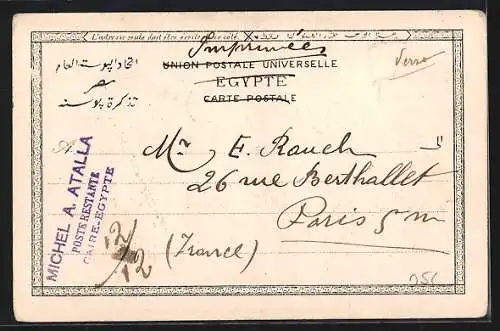 L'adresse seule doit être écrite de ce côté
Imprimées
Verso
اتحاد البوسته العام
UNION POSTALE UNIVERSELLE
مصر
EGYPTE
تذكرة بوسته
CARTE POSTALE
A
Mr E. Rauch
26 rue Berthallet
Paris 5 m
(France)
MICHEL A. ATALLA
POSTE RESTANTE
CAIRE-EGYPTE
12/12